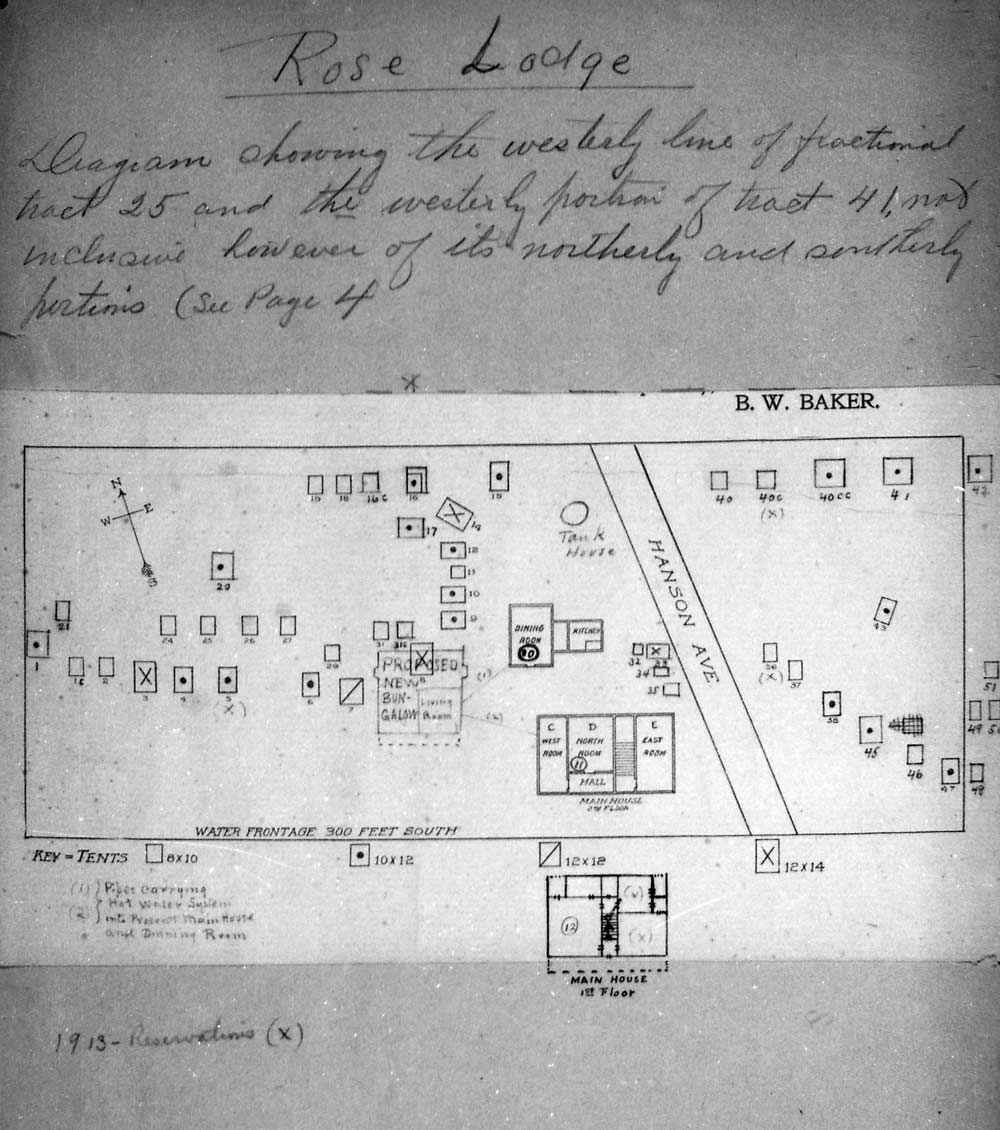 Rose Lodge
Diagram showing the westerly line of fractional
tract 25 and the westerly portion of tract 41, not
inclusive however of its northerly and southerly
portions (See Page 4
X
B. W. BAKER.
N
W E
S
19 18 16C 16 15
17 14
12
11
10
9
Tank
House
HANSON AVE.
40 40C 40CC 41 42
(X)
20
21
24 25 26 27
1 2 3 4 5 6 7
(X)
29 31 31C
8
PROPOSED
NEW
BUN-
GALOW
Living
Room
(1)
(2)
DINING
ROOM
10
KITCHEN
32 33
34
35
36 37
(X)
38
43
45
46
47 48
49 50
51
C D E
WEST NORTH EAST
ROOM ROOM ROOM
11
HALL
MAIN HOUSE
2ND FLOOR
WATER FRONTAGE 300 FEET SOUTH
KEY = TENTS 8X10 10X12 12X12 12X14
(1) Pipes Carrying
Hot Water System
(2) into Present Main House
and Dinning Room
(X)
12
(X)
MAIN HOUSE
1ST Floor
1913 - Reservations (X)